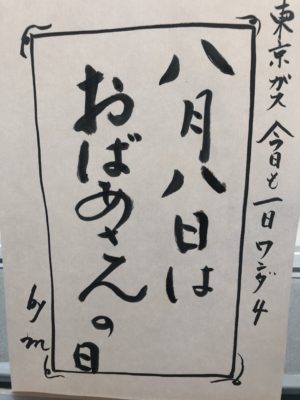 東京ガス 今日も一日ワンダ4
八月八日は
おばあさんの日
by m